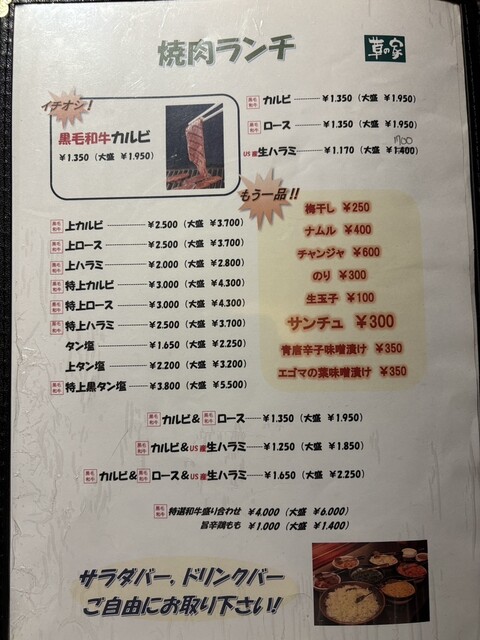 焼肉ランチ
草の家
イチオシ!
黒毛和牛カルビ
¥1.350 (大盛 ¥1.950)
黒毛和牛 カルビ ¥1.350 (大盛 ¥1.950)
黒毛和牛 ロース ¥1.350 (大盛 ¥1.950)
US産生ハラミ ¥1.170 (大盛 ¥1.400)
黒毛和牛 上カルビ ¥2.500 (大盛 ¥3.700)
黒毛和牛 上ロース ¥2.500 (大盛 ¥3.700)
黒毛和牛 上ハラミ ¥2.000 (大盛 ¥2.800)
黒毛和牛 特上カルビ ¥3.000 (大盛 ¥4.300)
黒毛和牛 特上ロース ¥3.000 (大盛 ¥4.300)
黒毛和牛 特上ハラミ ¥2.500 (大盛 ¥3.700)
タン塩 ¥1.650 (大盛 ¥2.250)
上タン塩 ¥2.200 (大盛 ¥3.200)
黒毛和牛 特上黒タン塩 ¥3.800 (大盛 ¥5.500)
もう一品!!
梅干し ¥250
ナムル ¥400
チャンジャ ¥600
のり ¥300
生玉子 ¥100
サンチュ ¥300
青唐辛子味噌漬け ¥350
エゴマの葉味噌漬け ¥350
黒毛和牛 カルビ&黒毛和牛 ロース ¥1.350 (大盛 ¥1.950)
黒毛和牛 カルビ&US産生ハラミ ¥1.250 (大盛 ¥1.850)
黒毛和牛 カルビ&黒毛和牛 ロース&US産生ハラミ ¥1.650 (大盛 ¥2.250)
黒毛和牛 特選和牛盛り合わせ ¥4.000 (大盛 ¥6.000)
旨辛鶏もも ¥1.000 (大盛 ¥1.400)
サラダバー,ドリンクバー
ご自由にお取り下さい!